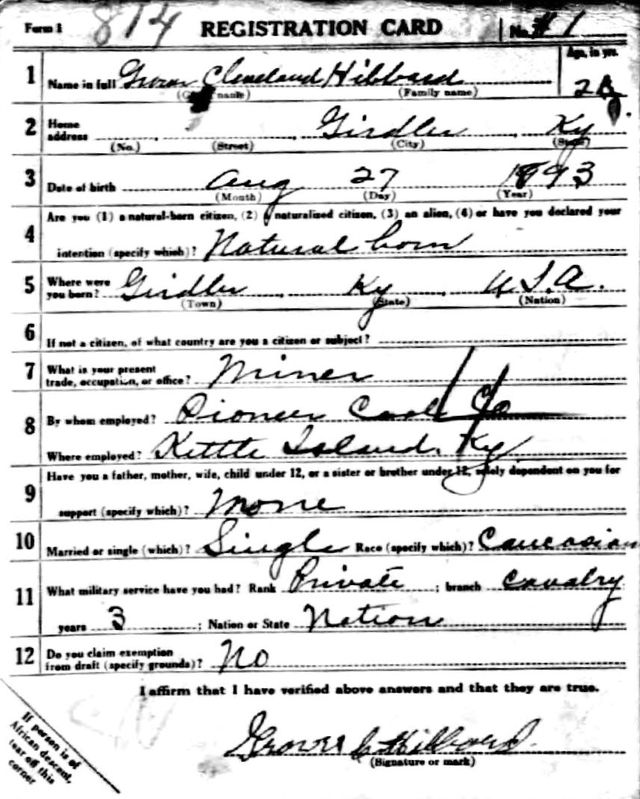 Form 1 814 REGISTRATION CARD No. #1
1 Name in full Grover Cleveland Hibbard Age, in yrs.
(Given name) (Family name)
2 Home address Girdler, Ky
(No.) (Street) (City) (State)
3 Date of birth Aug 27 1893
(Month) (Day) (Year)
4 Are you (1) a natural-born citizen, (2) a naturalized citizen, (3) an alien, (4) or have you declared your
intention (specify which)? Natural born
5 Where were you born? Girdler, Ky, U.S.A.
(Town) (State) (Nation)
6 If not a citizen, of what country are you a citizen or subject?
7 What is your present trade, occupation, or office? Miner
8 By whom employed? Pioneer Coal Co
Where employed? Kettle Island, Ky
9 Have you a father, mother, wife, child under 12, or a sister or brother under 12, solely dependent on you for
support (specify which)? None
10 Married or single (which)? Single Race (specify which)? Caucasian
11 What military service have you had? Rank Private ; branch Cavalry
years 3 ; Nation or State Nation
12 Do you claim exemption from draft (specify grounds)? No
I affirm that I have verified above answers and that they are true.
Grover C Hibbard
(Signature or mark)
If person is of
African descent,
tear off this
corner